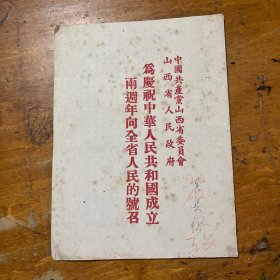 中國共產黨山西省委員會
山西省人民政府
為慶祝中華人民共和國成立
兩週年向全省人民的號召